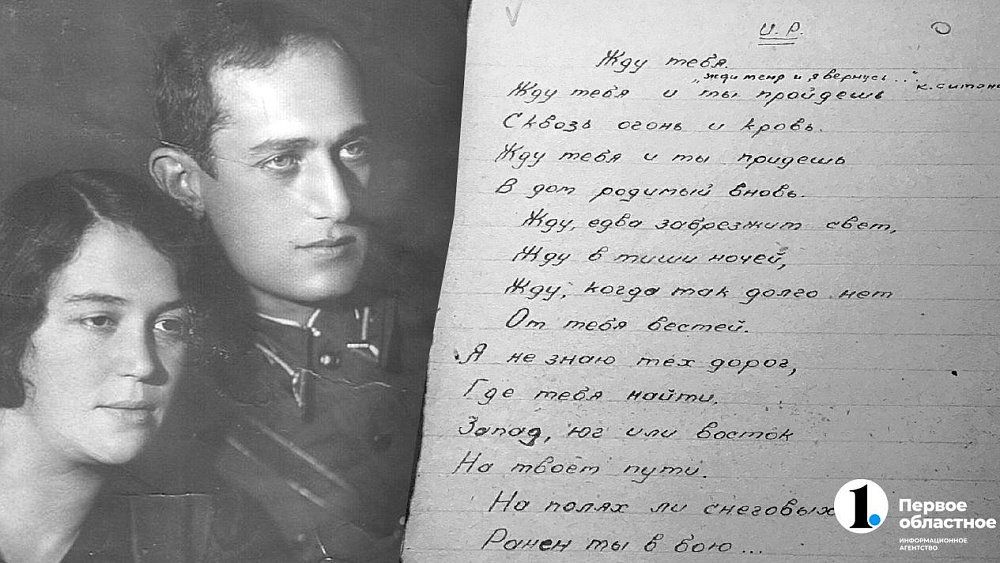 И. Р.
Жду тебя.
"жди меня и я вернусь..."
К. Симоно
Жду тебя и ты пройдешь
Сквозь огонь и кровь.
Жду тебя и ты придешь
В дом родимый вновь.
Жду, едва забрезжит свет,
Жду в тиши ночей,
Жду, когда так долго нет
От тебя вестей.
Я не знаю тех дорог,
Где тебя найти.
Запад, юг или восток
На твоем пути.
На полях ли снеговых
Ранен ты в бою...
1.
Первое
областное
ИНФОРМАЦИОННОЕ
АГЕНТСТВО